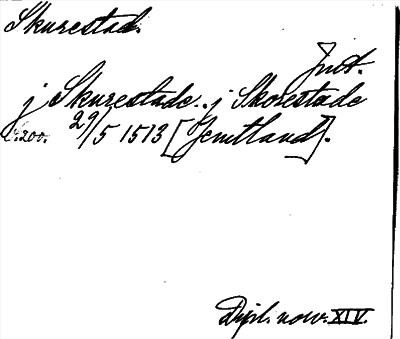 Skurestad.
Jmt.
j Skurestade. j Skorestade
s. 200. 29/5 1513 [Jemtland].
Dipl. norv. XIV.